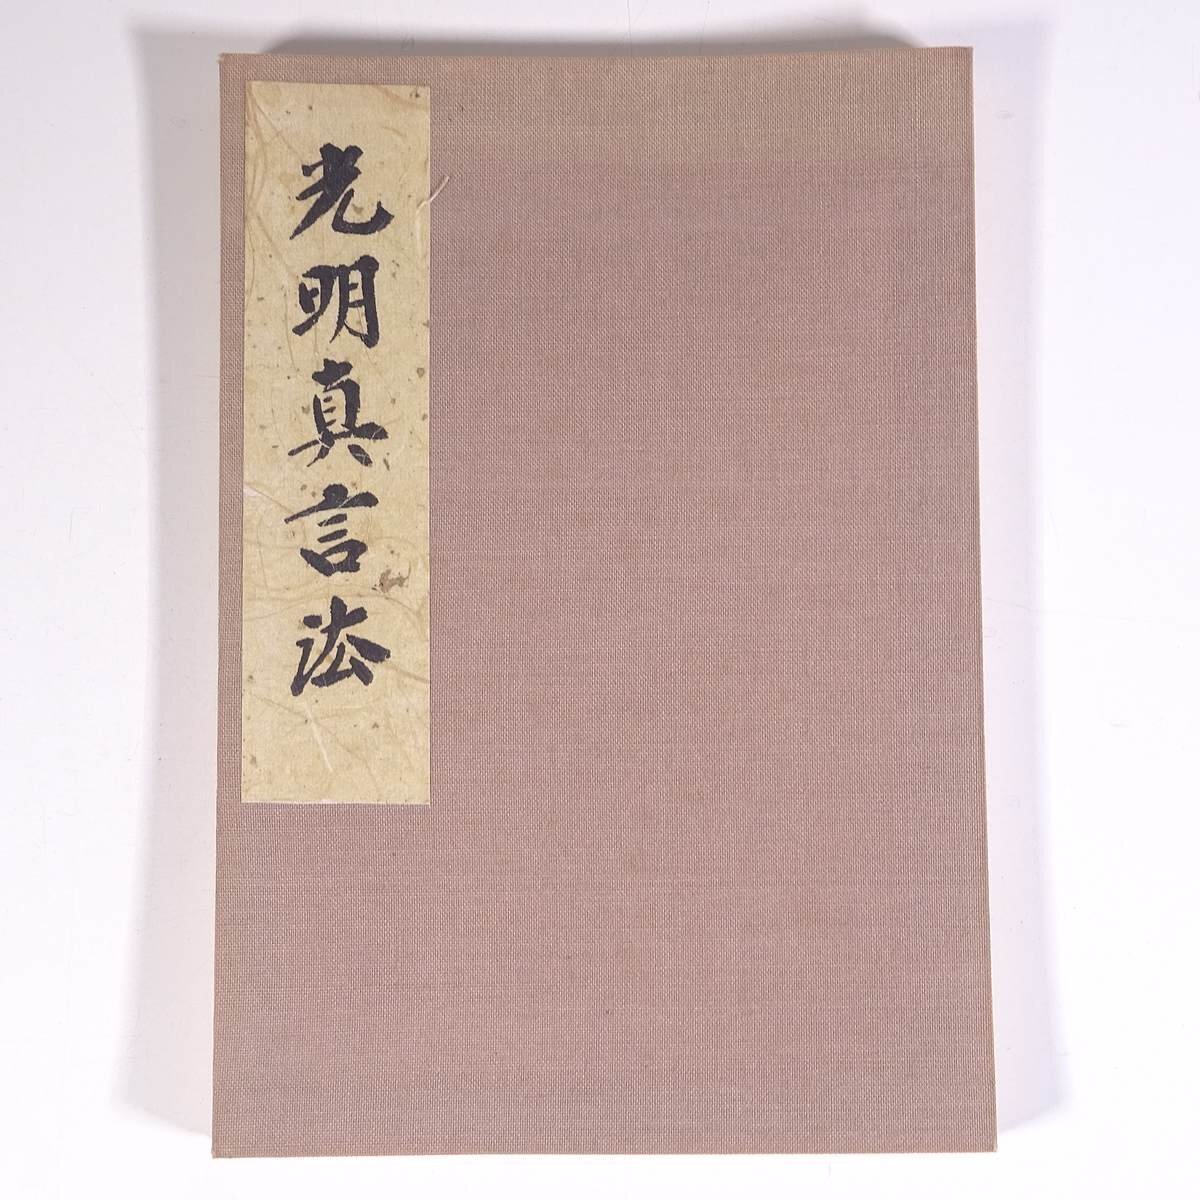 光明真言法